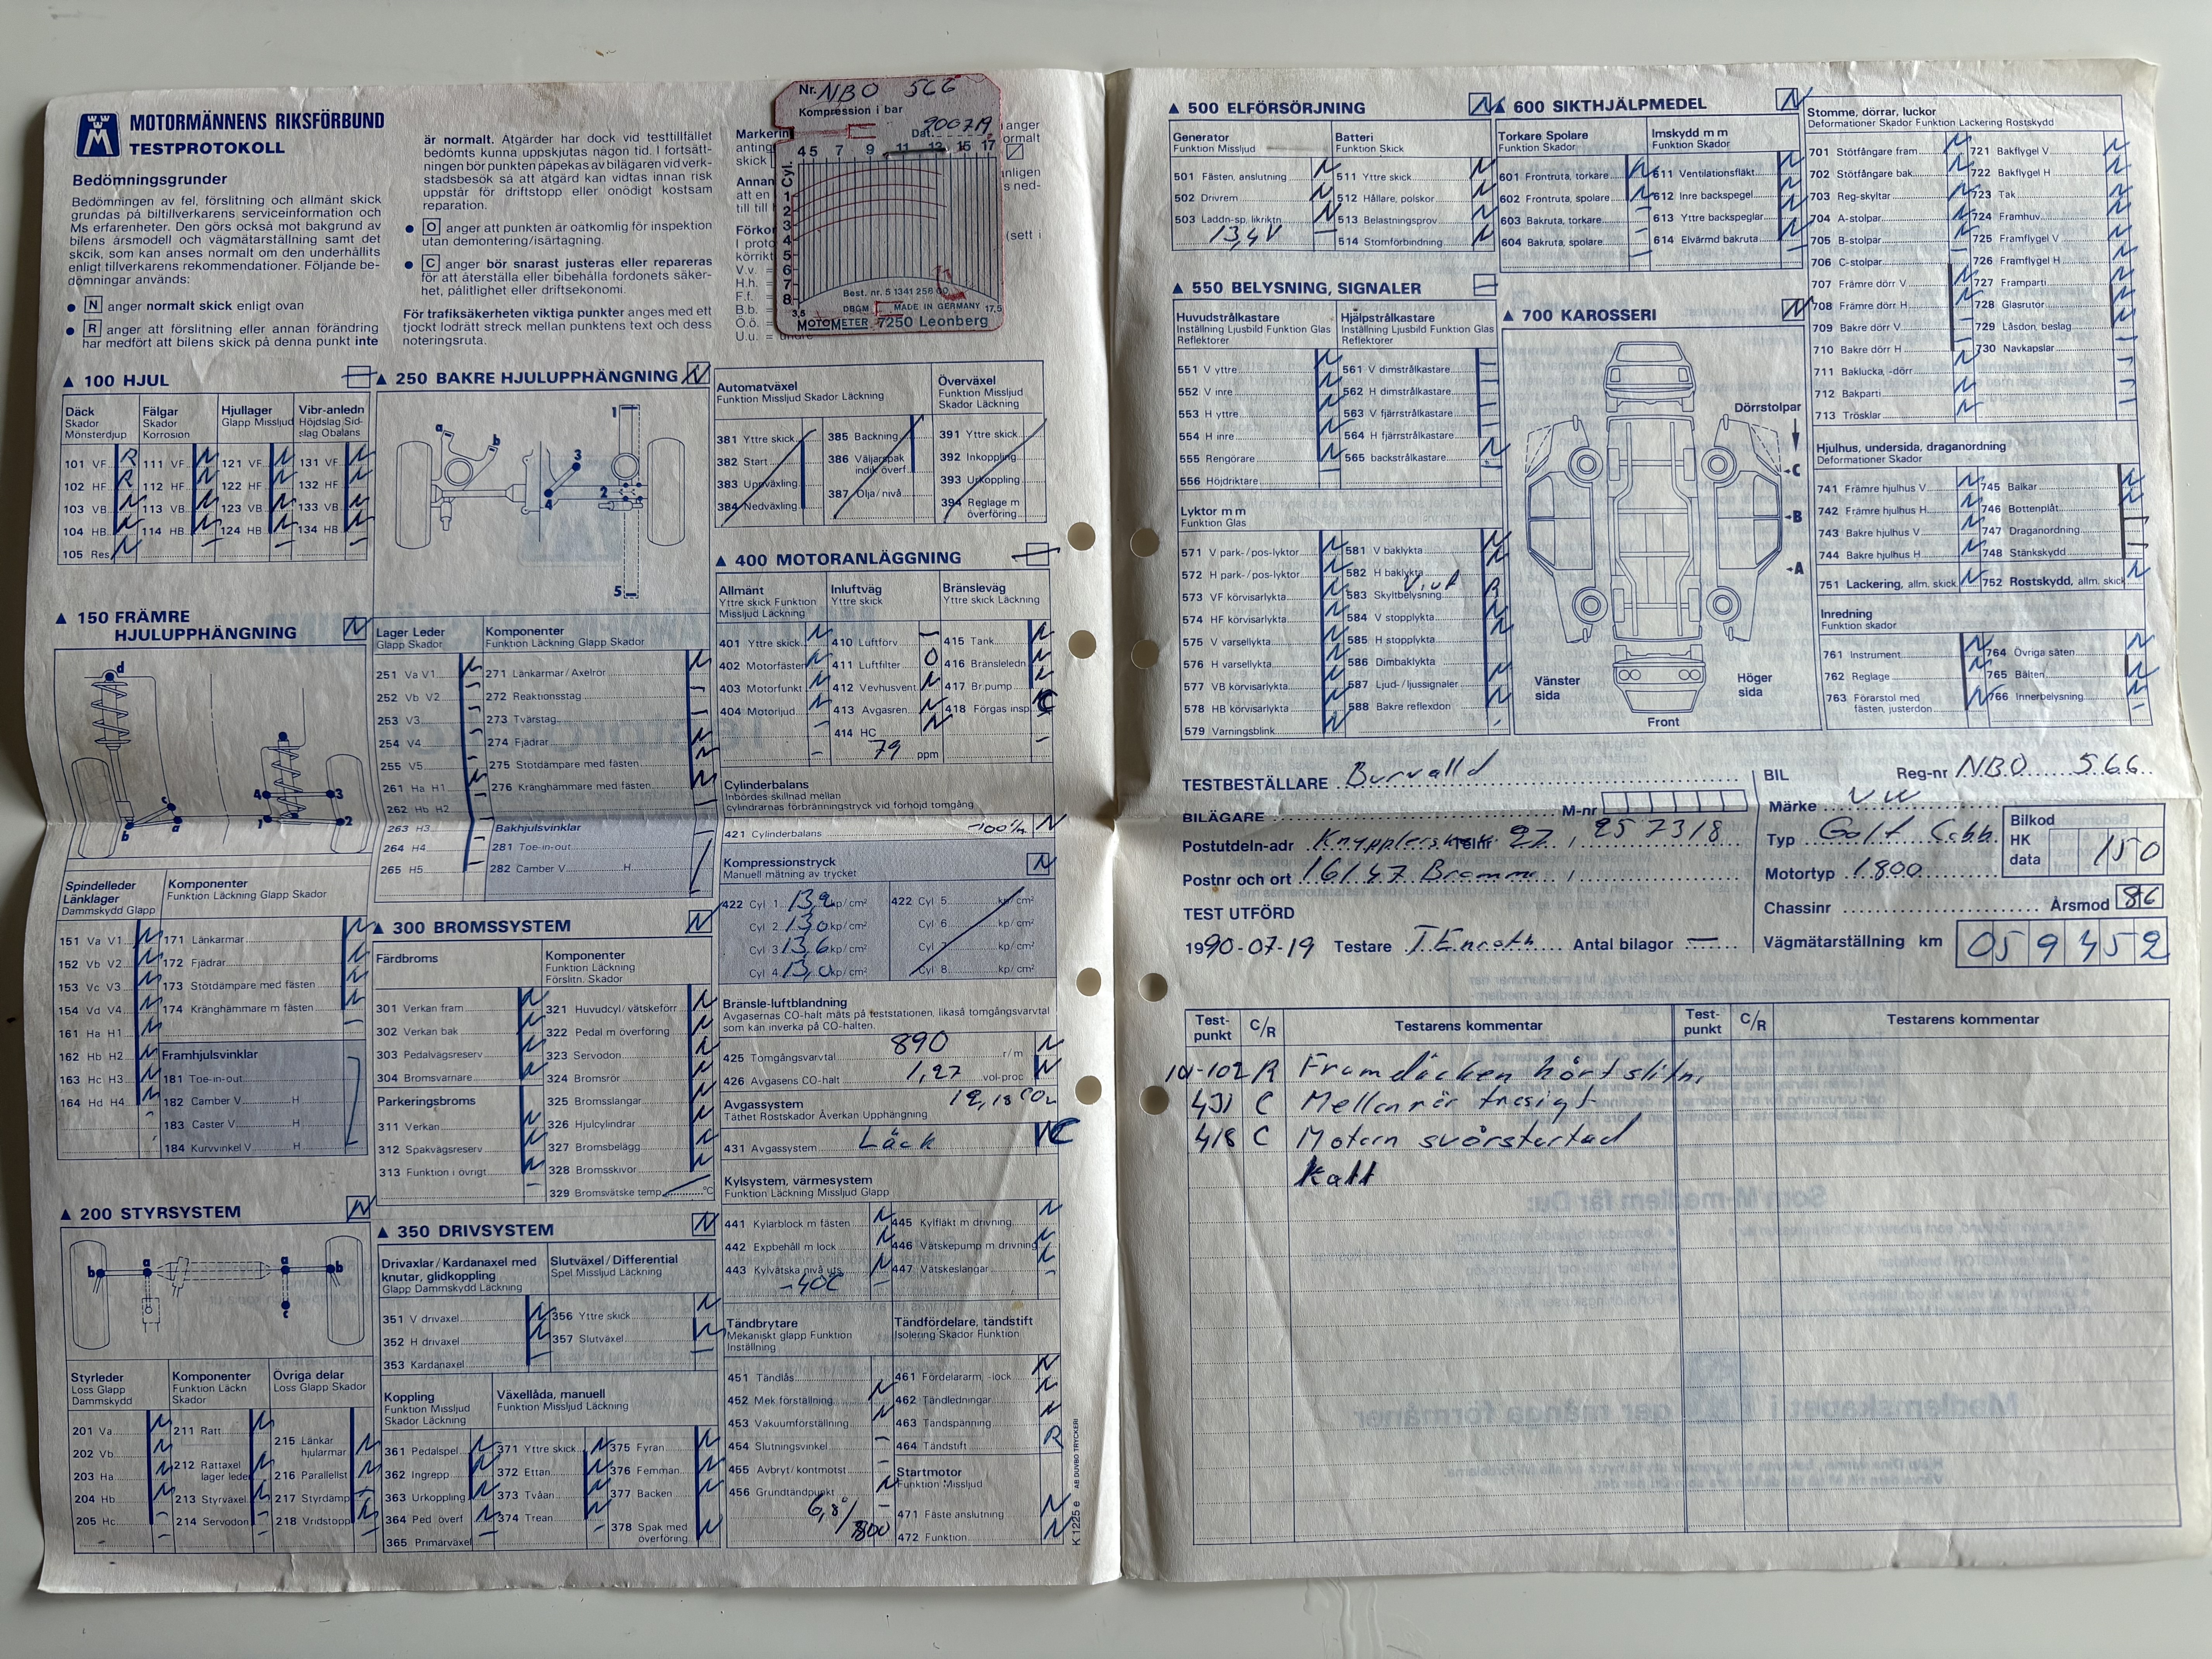 MOTORMÄNNENS RIKSFÖRBUND
TESTPROTOKOLL
Bedömningsgrunder
Bedömningen av fel, förslitning och allmänt skick
grundas på biltillverkarens serviceinformation och
Ms erfarenheter. Den görs också mot bakgrund av
bilens årsmodell och vägmätarställning samt det
skcik, som kan anses normalt om den underhållits
enligt tillverkarens rekommendationer. Följande be-
dömningar används:
● N anger normalt skick enligt ovan
● R anger att förslitning eller annan förändring
har medfört att bilens skick på denna punkt inte
är normalt. Åtgärder har dock vid testtillfället
bedömts kunna uppskjutas någon tid. I fortsätt-
ningen bör punkten påpekas av bilägaren vid verk-
stadsbesök så att åtgärd kan vidtas innan risk
uppstår för driftstopp eller onödigt kostsam
reparation.
● O anger att punkten är oåtkomlig för inspektion
utan demontering/isärtagning.
● C anger bör snarast justeras eller repareras
för att återställa eller bibehålla fordonets säker-
het, pålitlighet eller driftsekonomi.
För trafiksäkerheten viktiga punkter anges med ett
tjockt lodrätt streck mellan punktens text och dess
noteringsruta.
Nr. NBO 566
Kompression i bar
Dat. 900719
4 5 7 9 11 13 15 17
Cyl.
1
2
3
4
5
6
7
8
3,5 17,5
Best. nr. 5 1341 256 00
DBGM MADE IN GERMANY
MOTOMETER 7250 Leonberg
▲ 100 HJUL
Däck
Skador
Mönsterdjup
Fälgar
Skador
Korrosion
Hjullager
Glapp Missljud
Vibr-anledn
Höjdslag Sid-
slag Obalans
101 VF R 111 VF N 121 VF N 131 VF N
102 HF R 112 HF N 122 HF N 132 HF N
103 VB N 113 VB N 123 VB N 133 VB N
104 HB N 114 HB N 124 HB N 134 HB N
105 Res N
▲ 150 FRÄMRE
HJULUPPHÄNGNING N
d
c
b a
4 3
1 2
Spindelleder
Länklager
Dammskydd Glapp
Komponenter
Funktion Läckning Glapp Skador
151 Va V1 N 171 Länkarmar N
152 Vb V2 N 172 Fjädrar N
153 Vc V3 N 173 Stötdämpare med fästen N
154 Vd V4 N 174 Kränghämmare m fästen N
161 Ha H1 N
162 Hb H2 N Framhjulsvinklar
163 Hc H3 N 181 Toe-in-out
164 Hd H4 N 182 Camber V H
183 Caster V H
184 Kurvvinkel V H
▲ 200 STYRSYSTEM N
b a a b
c
Styrleder
Loss Glapp
Dammskydd
Komponenter
Funktion Läckn
Skador
Övriga delar
Loss Glapp Skador
201 Va N 211 Ratt N 215 Länkar hjularmar N
202 Vb N 212 Rattaxel lager leder N
203 Ha N 216 Parallellst N
204 Hb N 213 Styrväxel N 217 Styrdämp
205 Hc 214 Servodon 218 Vridstopp
▲ 250 BAKRE HJULUPPHÄNGNING N
a b
1
3
2
4
5
Lager Leder
Glapp Skador
Komponenter
Funktion Läckning Glapp Skador
251 Va V1 N 271 Länkarmar/Axelrör N
252 Vb V2 272 Reaktionsstag
253 V3 273 Tvärstag
254 V4 274 Fjädrar N
255 V5 275 Stötdämpare med fästen N
261 Ha H1 N 276 Kränghämmare med fästen N
262 Hb H2
263 H3 Bakhjulsvinklar
264 H4 281 Toe-in-out
265 H5 282 Camber V H
▲ 300 BROMSSYSTEM N
Färdbroms
Komponenter
Funktion Läckning
Förslitn. Skador
301 Verkan fram N 321 Huvudcyl/vätskeförr N
302 Verkan bak N 322 Pedal m överföring N
303 Pedalvägsreserv N 323 Servodon N
304 Bromsvarnare N 324 Bromsrör N
Parkeringsbroms 325 Bromsslangar N
311 Verkan N 326 Hjulcylindrar N
312 Spakvägsreserv N 327 Bromsbelägg N
313 Funktion i övrigt N 328 Bromsskivor N
329 Bromsvätske temp °C
▲ 350 DRIVSYSTEM N
Drivaxlar/Kardanaxel med
knutar, glidkoppling
Glapp Dammskydd Läckning
Slutväxel/Differential
Spel Missljud Läckning
351 V drivaxel N 356 Yttre skick N
352 H drivaxel N 357 Slutväxel N
353 Kardanaxel
Koppling
Funktion Missljud
Skador Läckning
Växellåda, manuell
Funktion Missljud Läckning
361 Pedalspel N 371 Yttre skick N 375 Fyran N
362 Ingrepp N 372 Ettan N 376 Femman N
363 Urkoppling N 373 Tvåan N 377 Backen N
364 Ped överf N 374 Trean N
365 Primärväxel 378 Spak med överföring N
Automatväxel
Funktion Missljud Skador Läckning
Överväxel
Funktion Missljud
Skador Läckning
381 Yttre skick 385 Backning 391 Yttre skick
382 Start 386 Väljarspak indik överf. 392 Inkoppling
383 Uppväxling 393 Urkoppling
384 Nedväxling 387 Olja/nivå 394 Reglage m överföring
▲ 400 MOTORANLÄGGNING
Allmänt
Yttre skick Funktion
Missljud Läckning
Inluftväg
Yttre skick
Bränsleväg
Yttre skick Läckning
401 Yttre skick N 410 Luftförv. – 415 Tank N
402 Motorfästen N 411 Luftfilter O 416 Bränsleledn N
403 Motorfunkt N 412 Vevhusvent N 417 Br.pump N
404 Motorljud N 413 Avgasren. N 418 Förgas insp C
414 HC N
79 ppm
Cylinderbalans
Inbördes skillnad mellan
cylindrarnas förbränningstryck vid förhöjd tomgång
421 Cylinderbalans -100% N
Kompressionstryck N
Manuell mätning av trycket
422 Cyl 1 13,2 kp/cm² 422 Cyl 5 kp/cm²
Cyl 2 13,0 kp/cm² Cyl 6 kp/cm²
Cyl 3 13,6 kp/cm² Cyl 7 kp/cm²
Cyl 4 13,0 kp/cm² Cyl 8 kp/cm²
Bränsle-luftblandning
Avgasernas CO-halt mäts på teststationen, likaså tomgångsvarvtal
som kan inverka på CO-halten.
425 Tomgångsvarvtal 890 r/m N
426 Avgasens CO-halt 1,27 vol-proc N
Avgassystem 12,18 CO2
Täthet Rostskador Åverkan Upphängning
431 Avgassystem Läck C
Kylsystem, värmesystem
Funktion Läckning Missljud Glapp
441 Kylarblock m fästen N 445 Kylfläkt m drivning N
442 Expbehåll m lock N 446 Vätskepump m drivning N
443 Kylvätska nivå uts N 447 Vätskeslangar N
-40C
Tändbrytare
Mekaniskt glapp Funktion
Inställning
Tändfördelare, tändstift
Isolering Skador Funktion
451 Tändlås 461 Fördelararm, -lock N
452 Mek förställning N 462 Tändledningar N
453 Vakuumförställning N 463 Tändspänning N
454 Slutningsvinkel – 464 Tändstift R
455 Avbryt/kontmotst
456 Grundtändpunkt N
6,8°/800
Startmotor
Funktion Missljud
471 Fäste anslutning N
472 Funktion N
K 1225 e AB DUVBO TRYCKERI
▲ 500 ELFÖRSÖRJNING N
Generator
Funktion Missljud
Batteri
Funktion Skick
501 Fästen, anslutning N 511 Yttre skick N
502 Drivrem N 512 Hållare, polskor N
503 Laddn-sp. likriktn N 513 Belastningsprov N
13,4 V 514 Stomförbindning N
▲ 550 BELYSNING, SIGNALER
Huvudstrålkastare
Inställning Ljusbild Funktion Glas
Reflektorer
Hjälpstrålkastare
Inställning Ljusbild Funktion Glas
Reflektorer
551 V yttre N 561 V dimstrålkastare
552 V inre N 562 H dimstrålkastare
553 H yttre N 563 V fjärrstrålkastare
554 H inre N 564 H fjärrstrålkastare
555 Rengörare N 565 backstrålkastare N
556 Höjdriktare
Lyktor m m
Funktion Glas
571 V park-/pos-lyktor N 581 V baklykta N
572 H park-/pos-lyktor N 582 H baklykta N
573 VF körvisarlykta N 583 Skyltbelysning R
574 HF körvisarlykta N 584 V stopplykta N
575 V varsellykta N 585 H stopplykta N
576 H varsellykta N 586 Dimbaklykta
577 VB körvisarlykta N 587 Ljud-/ljussignaler N
578 HB körvisarlykta N 588 Bakre reflexdon N
579 Varningsblink N
▲ 600 SIKTHJÄLPMEDEL N
Torkare Spolare
Funktion Skador
Imskydd m m
Funktion Skador
601 Frontruta, torkare N 611 Ventilationsfläkt N
602 Frontruta, spolare N 612 Inre backspegel N
603 Bakruta, torkare – 613 Yttre backspeglar N
604 Bakruta, spolare – 614 Elvärmd bakruta N
▲ 700 KAROSSERI N
Dörrstolpar
C
B
A
Vänster
sida
Höger
sida
Front
Stomme, dörrar, luckor
Deformationer Skador Funktion Lackering Rostskydd
701 Stötfångare fram N 721 Bakflygel V N
702 Stötfångare bak N 722 Bakflygel H N
703 Reg-skyltar N 723 Tak N
704 A-stolpar N 724 Framhuv N
705 B-stolpar N 725 Framflygel V N
706 C-stolpar 726 Framflygel H N
707 Främre dörr V N 727 Framparti N
708 Främre dörr H N 728 Glasrutor N
709 Bakre dörr V 729 Låsdon, beslag N
710 Bakre dörr H 730 Navkapslar
711 Baklucka, -dörr N
712 Bakparti N
713 Trösklar N
Hjulhus, undersida, draganordning
Deformationer Skador
741 Främre hjulhus V N 745 Balkar N
742 Främre hjulhus H N 746 Bottenplåt N
743 Bakre hjulhus V N 747 Draganordning
744 Bakre hjulhus H N 748 Stänkskydd
751 Lackering, allm. skick N 752 Rostskydd, allm. skick N
Inredning
Funktion skador
761 Instrument N 764 Övriga säten N
762 Reglage N 765 Bälten N
763 Förarstol med fästen, justerdon N 766 Innerbelysning N
TESTBESTÄLLARE Burvalld
BILÄGARE M-nr
Postutdeln-adr Telnr 27, 257318
Postnr och ort 16147 Bromma
TEST UTFÖRD
1990-07-19 Testare T Enroth Antal bilagor —
BIL Reg-nr NBO 566
Märke VW
Typ Golf Cabb.
Motortyp 1800
Bilkod
HK
data 150
Chassinr Årsmod 86
Vägmätarställning km 059452
Test-
punkt
C/R
Testarens kommentar
Test-
punkt
C/R
Testarens kommentar
101-102 R Framdäcken hårt slitn,
431 C Mellanrör trasigt
418 C Motorn svårstartad
kall